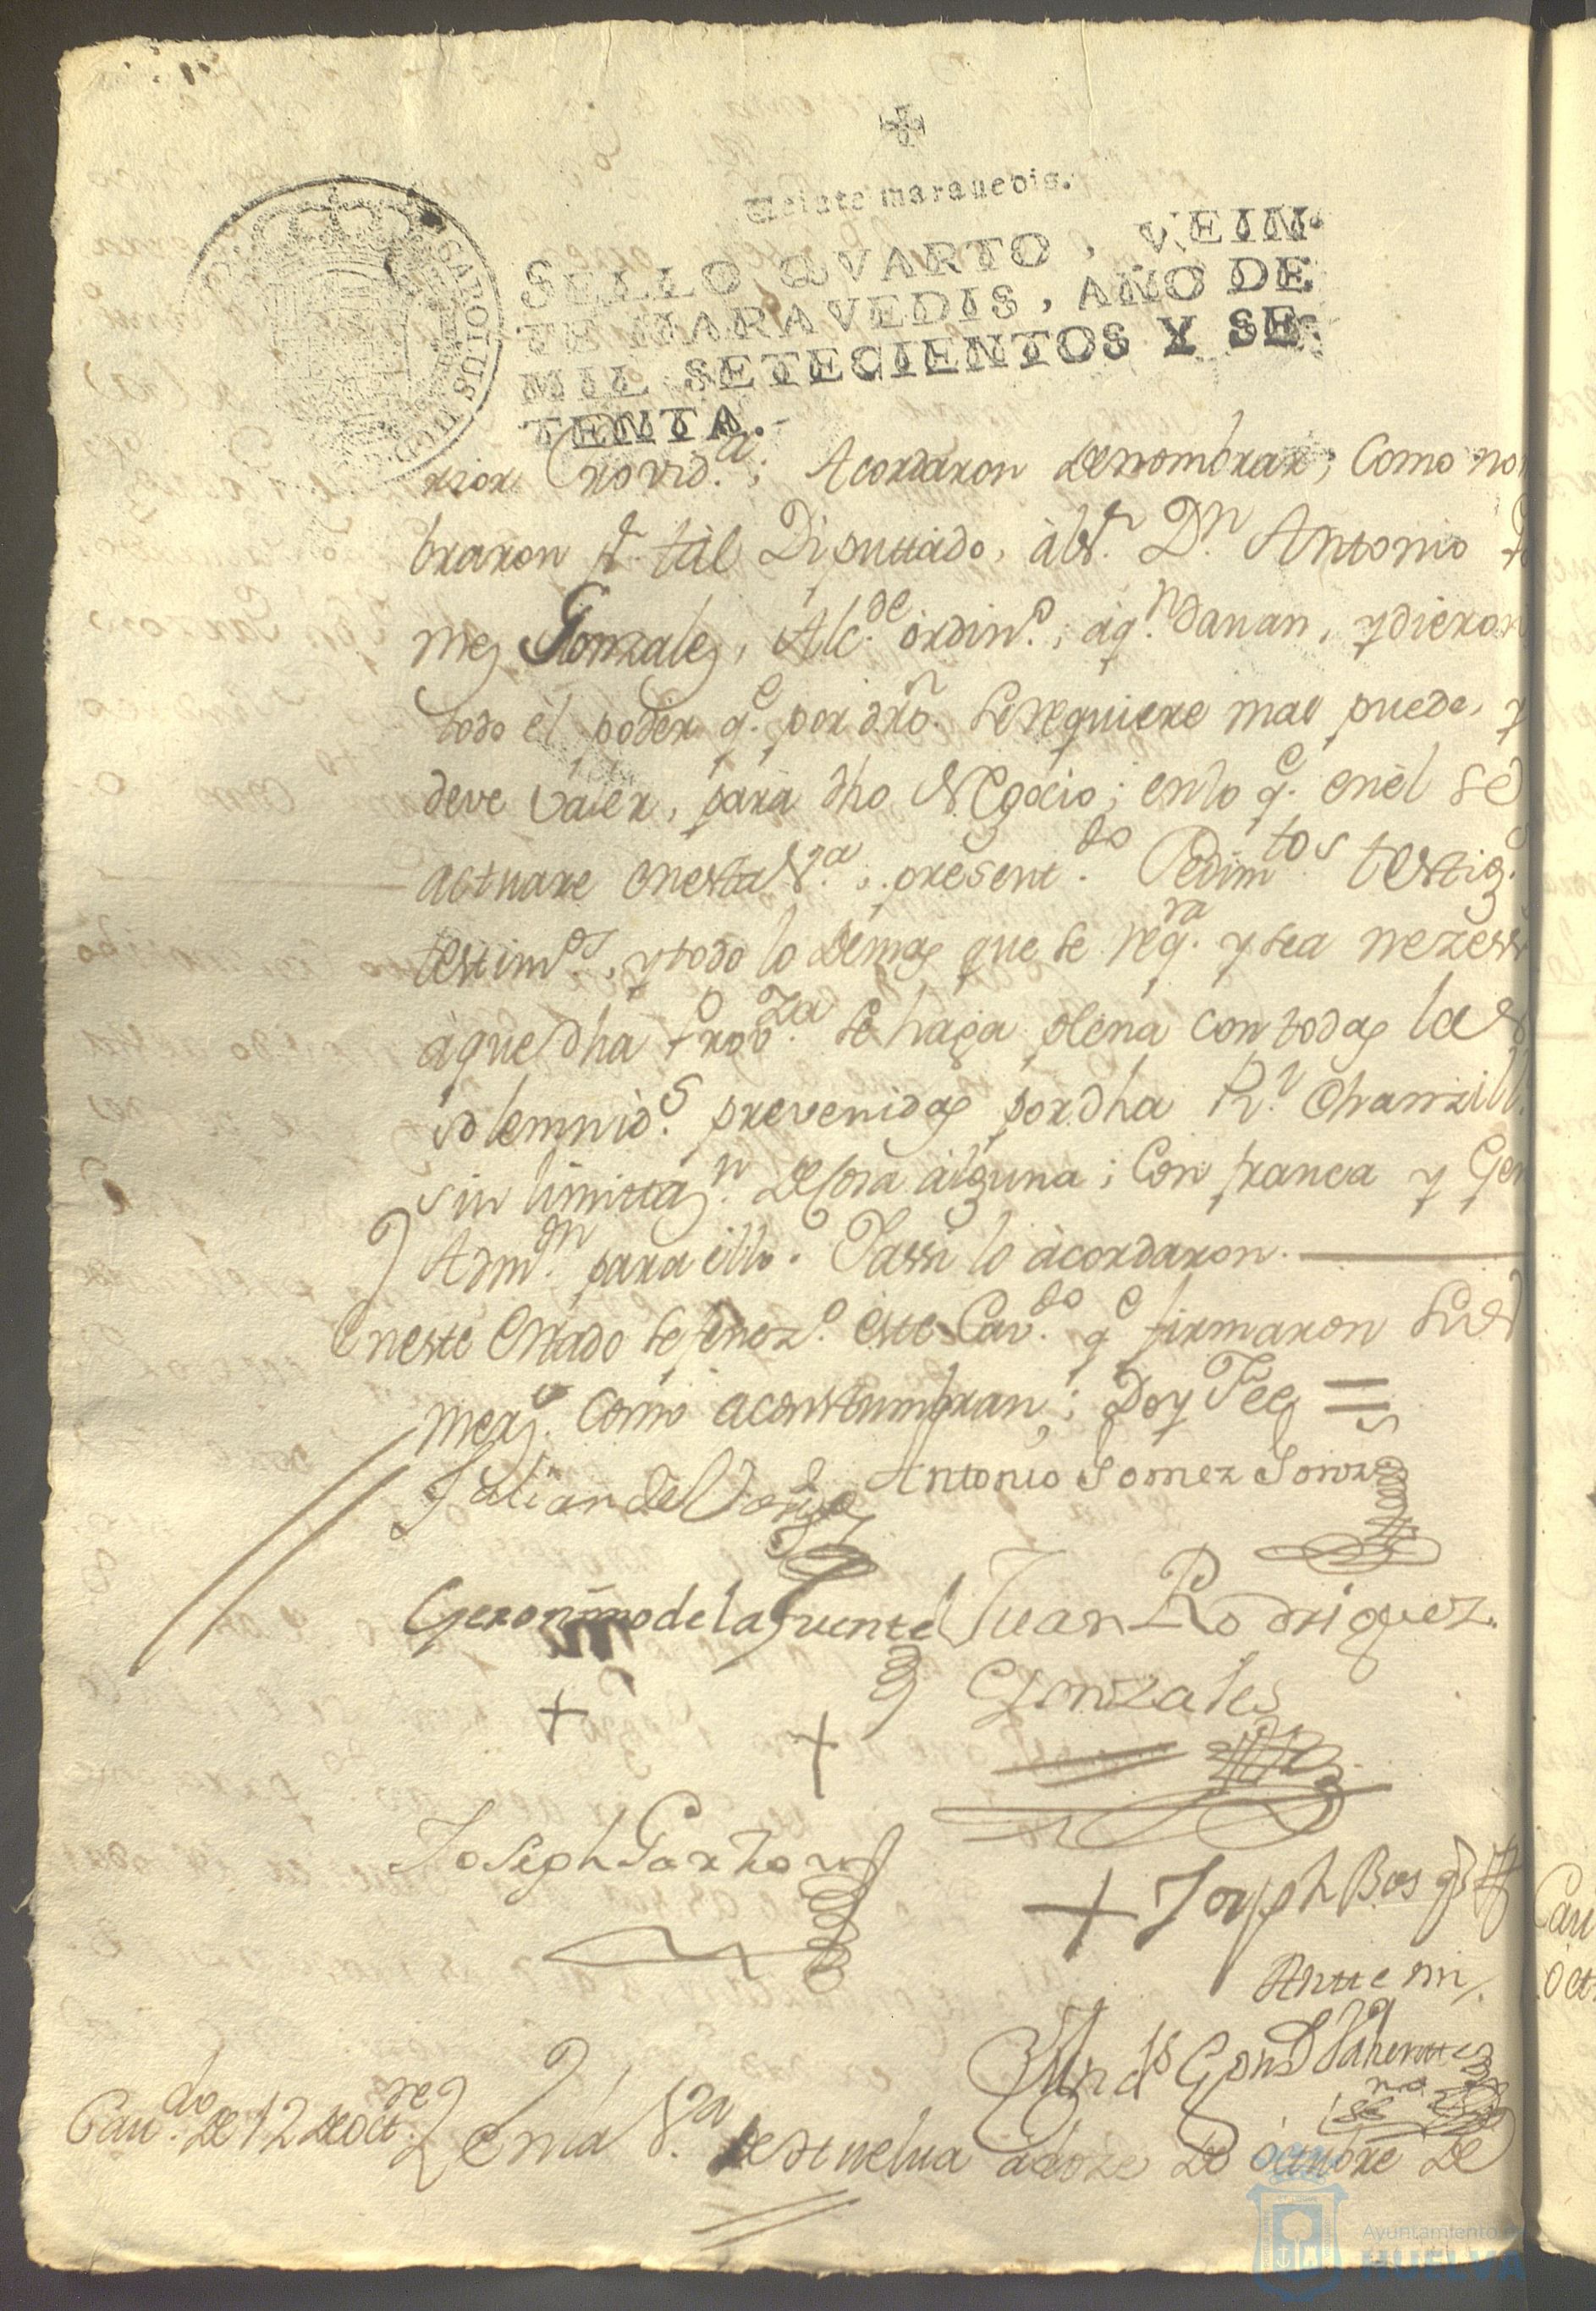 Veinte marauedis.
SELLO QVARTO, VEIN-
TE MARAVEDIS, AÑO DE
MIL SETECIENTOS Y SE-
TENTA.
CAROLUS III D.G.
rior Provid.ª; Acordaron de nombrar, Como nom
braron p.r tál Diputtado, àl S.r D.n Antonio
mez Gonzalez, Alc.de ordin.º; áq.n davan, y dieron
todo el poder q.e por drõ. se requiere mas puede, y
deve valer, para dho Negocio; en lo q.e enèl se
actuare en esta V.ª, present.do Pedim.tos testig.s
testim.os, y todo lo demas que se req.ra y sea nezess
áque dha Prov.za se haga plena con todas las
solemnid.s prevenidas por dha R.l Chanzill.
sin limittaz.n de cosa alguna; Con franca y Gen
Adm.on para ello. Yassi lo àcordaron.
En este estado se fenez.º este Cav.do q.e firmaron sus
merz.s como acostumbran; Doy Fee =
Julian del Antonio Gomez Gonz
Geronimo de la Fuente Juan Rodriguez
Gonzales
Joseph Garzon
+ Joseph Bos
Antte mi,
Cau.do de 12 de oct.re En la V.ª de Huelua á doze de óctubre de
Cau
Oct
Ayuntamiento de
HUELVA